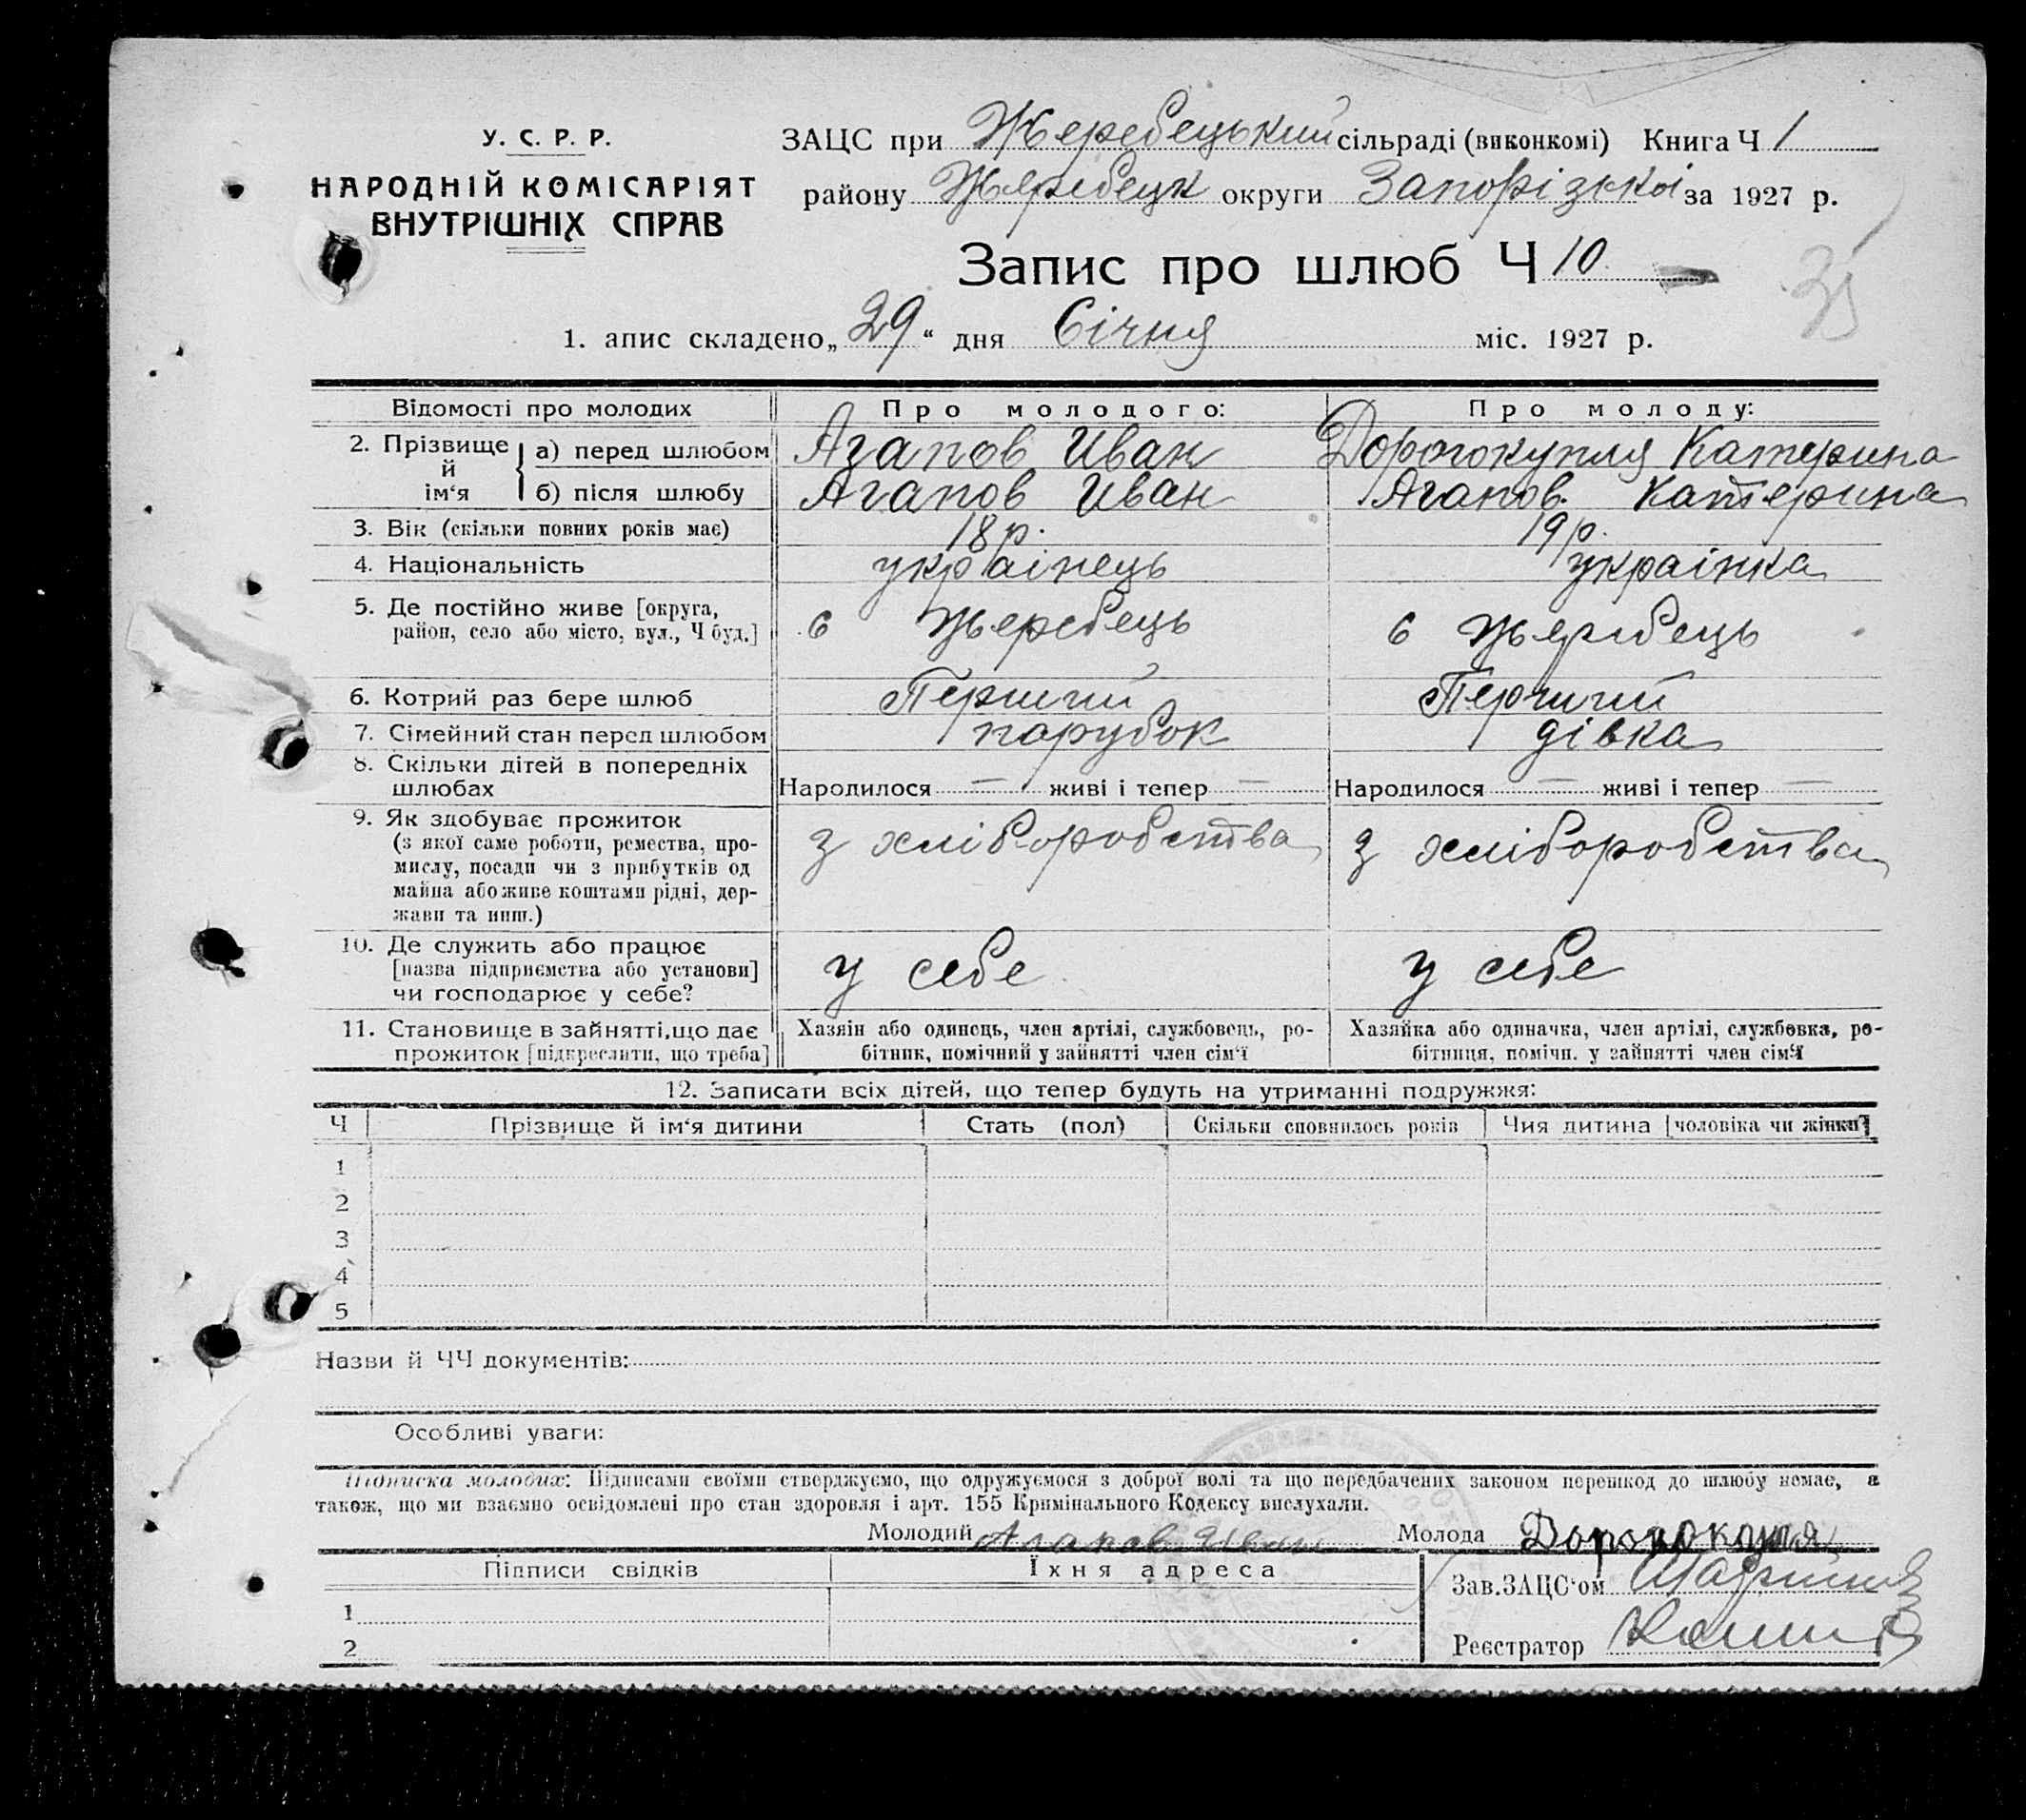 У. С. Р. Р.
НАРОДНІЙ КОМІСАРІЯТ
ВНУТРІШНІХ СПРАВ
ЗАЦС при Жеребецький сільраді (виконкомі) Книга Ч 1
району Жеребецк округи Запорізькоі за 1927 р.
Запис про шлюб Ч 10
35
1. апис складено „29“ дня Січня міс. 1927 р.
Відомості про молодих Про молодого: Про молоду:
2. Прізвище й ім‘я а) перед шлюбом Агапов Иван Дорогокупля Катерина
б) після шлюбу Агапов Иван Агапов Катерина
3. Вік (скільки повних років має) 18 р. 19 р.
4. Національність украінець украінка
5. Де постійно живе [округа, район, село або місто, вул., Ч буд.] с Жеребець с Жеребець
6. Котрий раз бере шлюб Перший Перший
7. Сімейний стан перед шлюбом парубок дівка
8. Скільки дітей в попередніх шлюбах Народилося — живі і тепер — Народилося — живі і тепер —
9. Як здобуває прожиток
(з якої саме роботи, ремества, про-
мислу, посади чи з прибутків од
майна або живе коштами рідні, дер-
жави та инш.) з хліборобства з хліборобства
10. Де служить або працює
[назва підприємства або установи]
чи господарює у себе? у себе у себе
11. Становище в зайнятті, що дає
прожиток [підкреслити, що треба]
Хазяін або одинець, член артілі, службовець, ро-
бітник, помічний у зайнятті член сім‘ї
Хазяйка або одиначка, член артілі, службовка, ро-
бітниця, помічн. у зайнятті член сім‘ї
12. Записати всіх дітей, що тепер будуть на утриманні подружжя:
Ч Прізвище й ім‘я дитини Стать (пол) Скільки сповнилось років Чия дитина [чоловіка чи жінки?]
1
2
3
4
5
Назви й ЧЧ документів:
Особливі уваги:
Підписка молодих: Підписами своїми стверджуємо, що одружуємося з доброї волі та що передбачених законом перешкод до шлюбу немає, а
також, що ми взаємно освідомлені про стан здоровля і арт. 155 Кримінального Кодексу вислухали.
Молодий Агапов Иван Молода Дорогокупля
Підписи свідків Їхня адреса
Зав. ЗАЦС‘ом
1
2
Реєстратор